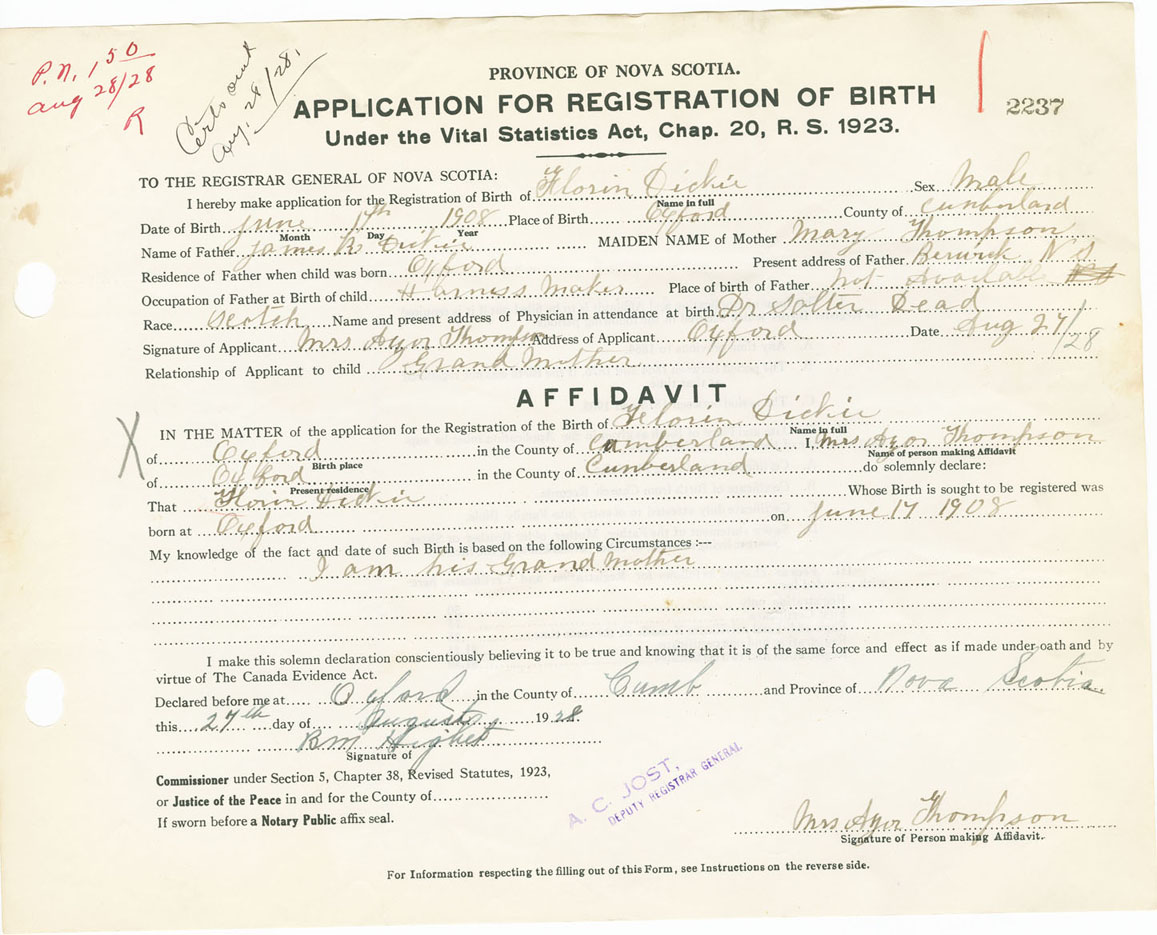 P.N. 1 50
Aug 28/28
R
Certs out
Aug. 28/28.
PROVINCE OF NOVA SCOTIA.
APPLICATION FOR REGISTRATION OF BIRTH
2237
Under the Vital Statistics Act, Chap. 20, R. S. 1923.
TO THE REGISTRAR GENERAL OF NOVA SCOTIA:
I hereby make application for the Registration of Birth of Florin Dickie Sex Male
Name in full
Date of Birth June 17th 1908 Place of Birth Oxford County of Cumberland
Month Day Year
Name of Father James R Dickie MAIDEN NAME of Mother Mary Thompson
Residence of Father when child was born Oxford Present address of Father Berwick N S
Occupation of Father at Birth of child Harness Maker Place of birth of Father not available
Race Scotch Name and present address of Physician in attendance at birth Dr Solter Dead
Signature of Applicant Mrs Ayor Thompson Address of Applicant Oxford Date Aug 27/28
Relationship of Applicant to child Grand Mother
AFFIDAVIT
X
IN THE MATTER of the application for the Registration of the Birth of Florin Dickie
Name in full
of Oxford in the County of Cumberland I, Mrs Ayor Thompson
Birth place Name of person making Affidavit
of Oxford in the County of Cunberland do solemnly declare:
Present residence
That Florin Dickie Whose Birth is sought to be registered was
born at Oxford on June 17 1908
My knowledge of the fact and date of such Birth is based on the following Circumstances :---
I am his Grand Mother
I make this solemn declaration conscientiously believing it to be true and knowing that it is of the same force and effect as if made under oath and by
virtue of The Canada Evidence Act.
Declared before me at Oxford in the County of Cumb and Province of Nova Scotia
this 27th day of August 1928.
BM
Signature of
Commissioner under Section 5, Chapter 38, Revised Statutes, 1923,
or Justice of the Peace in and for the County of
If sworn before a Notary Public affix seal.
A. C. JOST,
DEPUTY REGISTRAR GENERAL.
Mrs Ayor Thompson
Signature of Person making Affidavit.
For Information respecting the filling out of this Form, see Instructions on the reverse side.